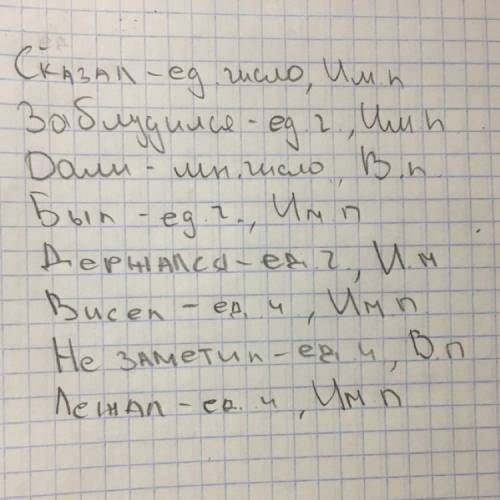 Сказал - ед. число, Им. п
Заблудился - ед. ч., Им п
Дали - мн. число, В. п
Был - ед. ч., Им п
Держался - ед. ч, И. м
Висел - ед. ч, Им п
Не заметил - ед. ч, В. п
Лежал - ед. ч, Им п